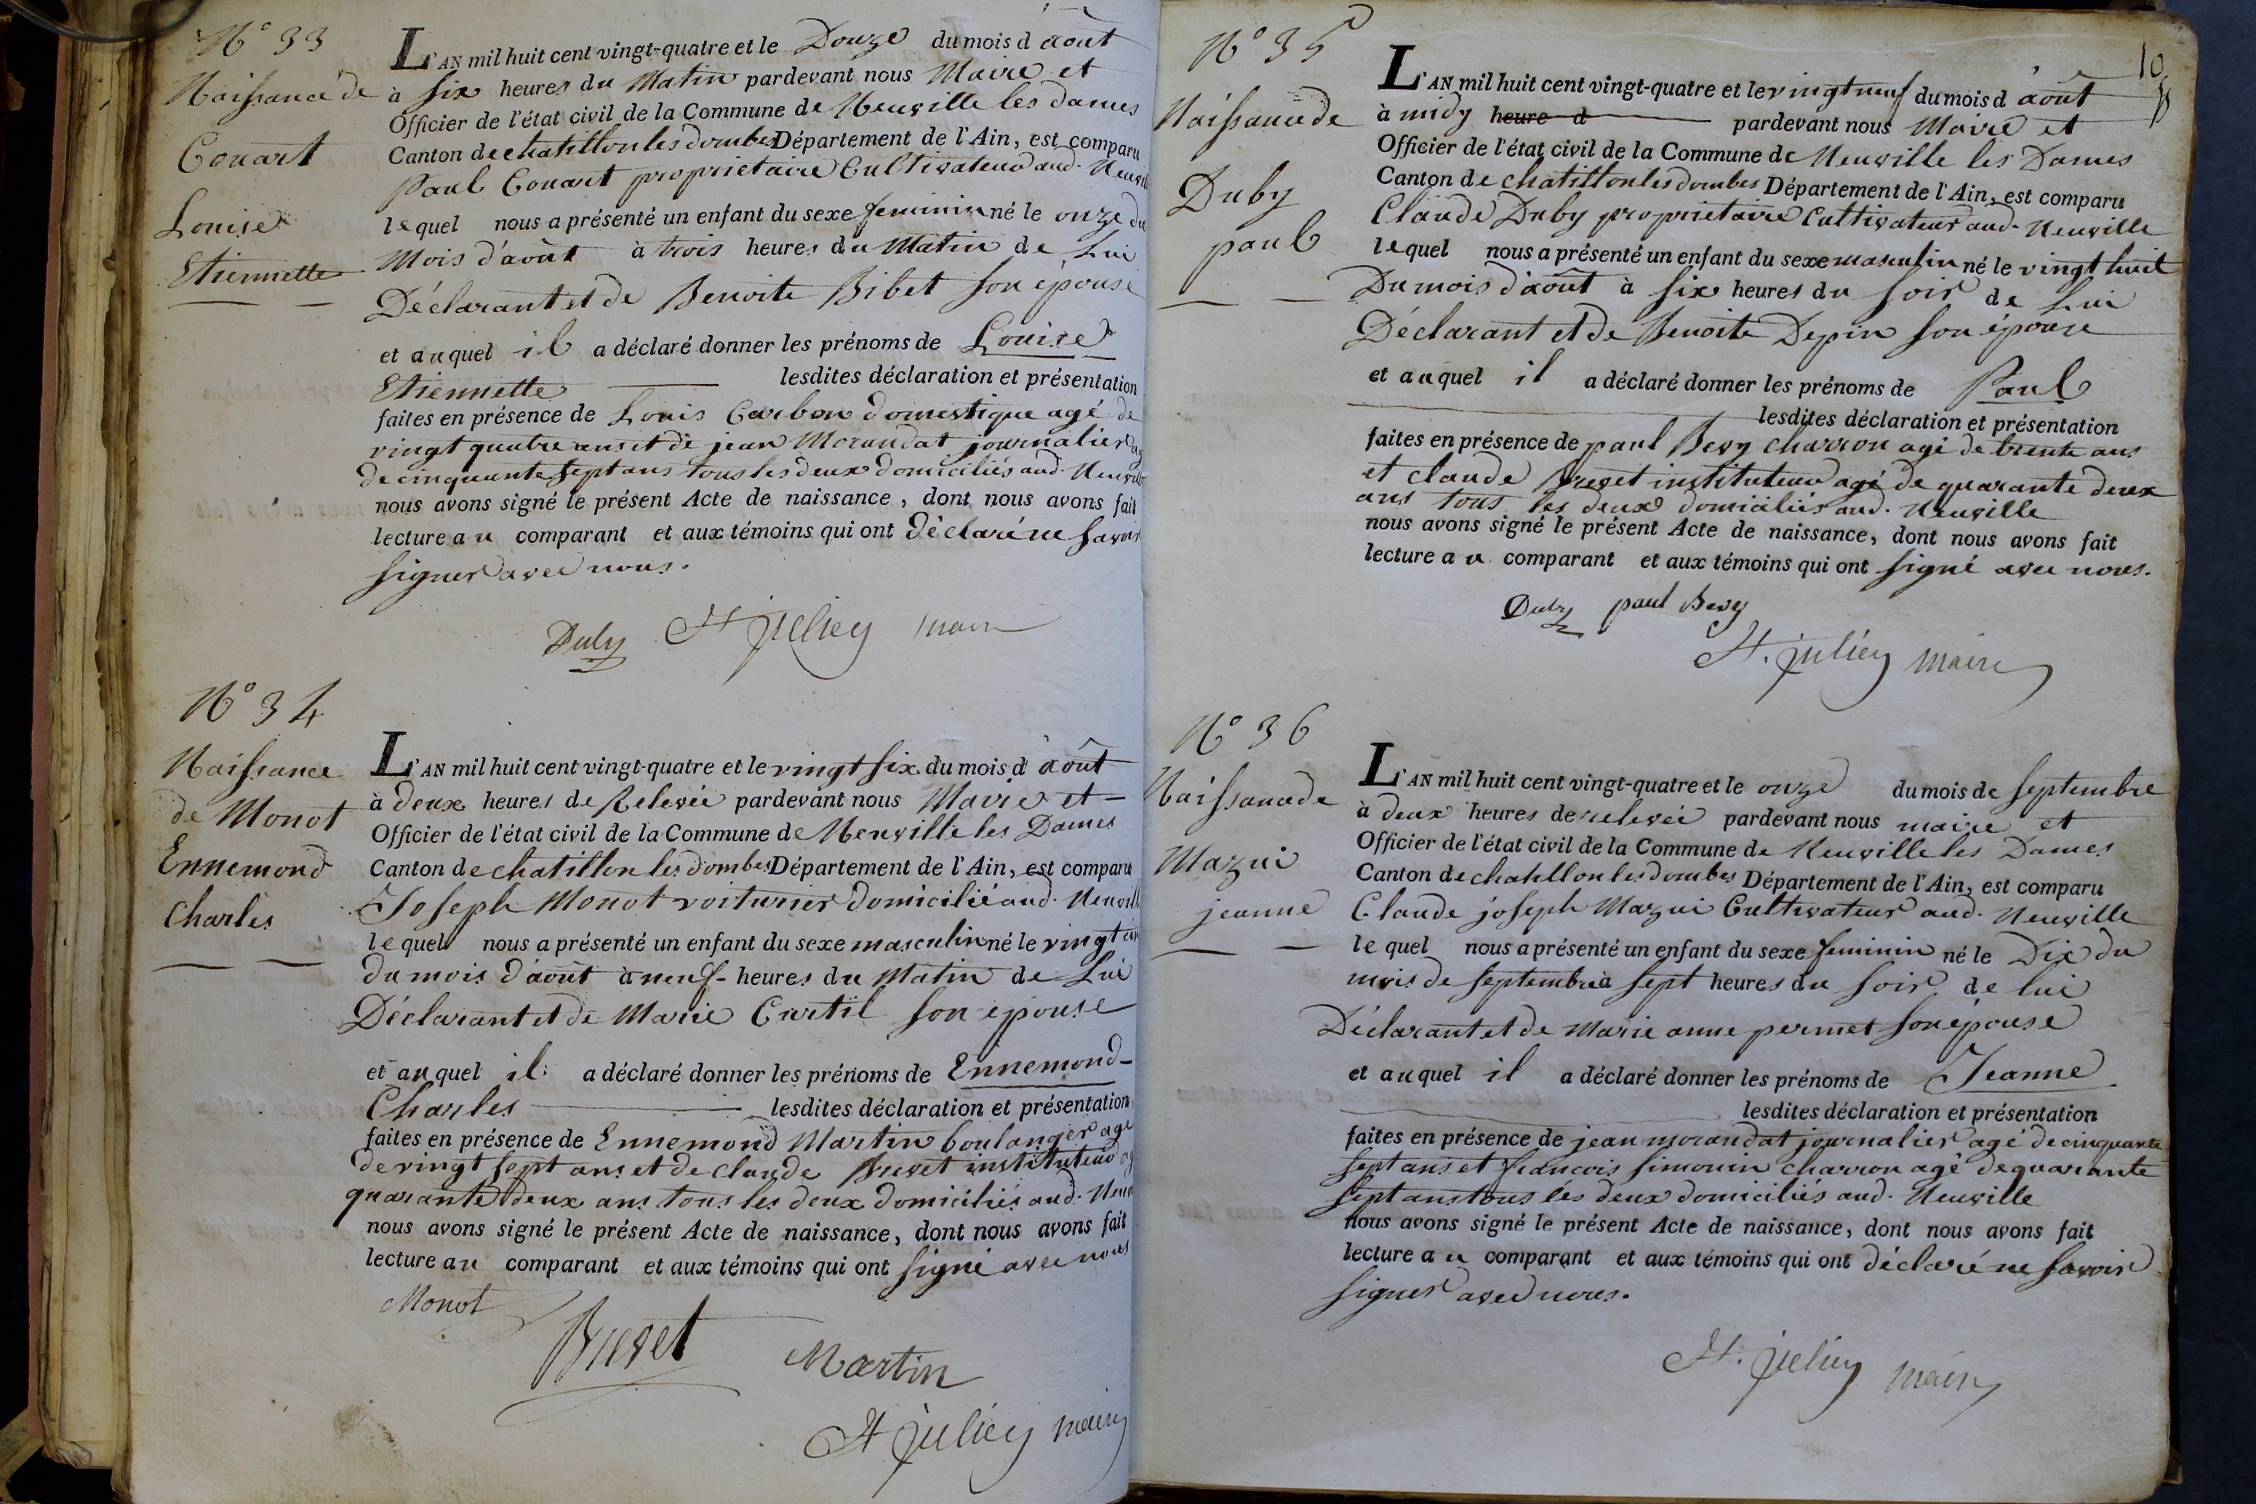 N° 33
Naissance de
Couart
Louise
Etiennette
L'AN mil huit cent vingt-quatre et le Douze du mois d'août
à six heures du Matin pardevant nous Maire et
Officier de l'état civil de la Commune de Neuville les dames
Canton de chatillon les dombes Département de l'Ain, est comparu
Paul Couart proprietaire Cultivateur aud. Neuvil
lequel nous a présenté un enfant du sexe feminin né le onze du
Mois d'août à trois heures du Matin de Lui
Déclarant et de Benoite Bibet son épouse
et auquel il a déclaré donner les prénoms de Louise
Etiennette lesdites déclaration et présentation
faites en présence de Louis Carbon domestique agé de
vingt quatre ans et de jean Morandat journalier
de cinquante sept ans tous les deux domiciliés aud. Neuvil
nous avons signé le présent Acte de naissance, dont nous avons fait
lecture au comparant et aux témoins qui ont déclaré ne savoir
signer avec nous.
Duby St julien maire
N° 34
Naissance
de Monot
Ennemond
Charles
L'AN mil huit cent vingt-quatre et le vingt six du mois d'août
à deux heures de Relevée pardevant nous Maire et
Officier de l'état civil de la Commune de Neuville les Dames
Canton de chatillon les dombes Département de l'Ain, est comparu
Joseph Monot voiturier domicilié aud. Neuvill
lequel nous a présenté un enfant du sexe masculin né le vingt cin
du mois d'août à neuf heures du Matin de Lui
Déclarant et de Marie Curtil son épouse
et auquel il a déclaré donner les prénoms de Ennemond
Charles lesdites déclaration et présentation
faites en présence de Ennemond Martin boulanger agé
de vingt sept ans et de claude Brevet instituteur ag
quarante deux ans tous les deux domiciliés aud. Neuv
nous avons signé le présent Acte de naissance, dont nous avons fait
lecture au comparant et aux témoins qui ont signé avec nous
Monot
Brevet Martin
St julien maire
10
N° 35
Naissance de
Duby
paul
L'AN mil huit cent vingt-quatre et le vingt neuf du mois d'août
à midy heure d pardevant nous Maire et
Officier de l'état civil de la Commune de Neuville les Dames
Canton de chatillon les dombes Département de l'Ain, est comparu
Claude Duby proprietaire Cultivateur aud. Neuville
lequel nous a présenté un enfant du sexe masculin né le vingt huit
Du mois d'août à six heures du soir de Lui
Déclarant et de Benoite Depin son épouse
et auquel il a déclaré donner les prénoms de Paul
lesdites déclaration et présentation
faites en présence de paul Bevy charron agé de trente ans
et claude Brevet instituteur agé de quarante deux
ans tous les deux domiciliés aud. Neuville
nous avons signé le présent Acte de naissance, dont nous avons fait
lecture au comparant et aux témoins qui ont signé avec nous.
Duby paul Bevy
St. julien maire
N° 36
Naissance de
Mazui
jeanne
L'AN mil huit cent vingt-quatre et le onze du mois de septembre
à deux heures de relevée pardevant nous maire et
Officier de l'état civil de la Commune de Neuville les Dames
Canton de chatillon les dombes Département de l'Ain, est comparu
Claude joseph Mazui Cultivateur aud. Neuville
lequel nous a présenté un enfant du sexe feminin né le Dix du
mois de septembre à sept heures du soir de lui
Déclarant et de Marie anne permet son épouse
et auquel il a déclaré donner les prénoms de Jeanne
lesdites déclaration et présentation
faites en présence de jean morandat journalier agé de cinquante
sept ans et francois simonin charron agé de quarante
sept ans tous les deux domiciliés aud. Neuville
nous avons signé le présent Acte de naissance, dont nous avons fait
lecture au comparant et aux témoins qui ont déclaré ne savoir
signer avec nous.
St. julien maire